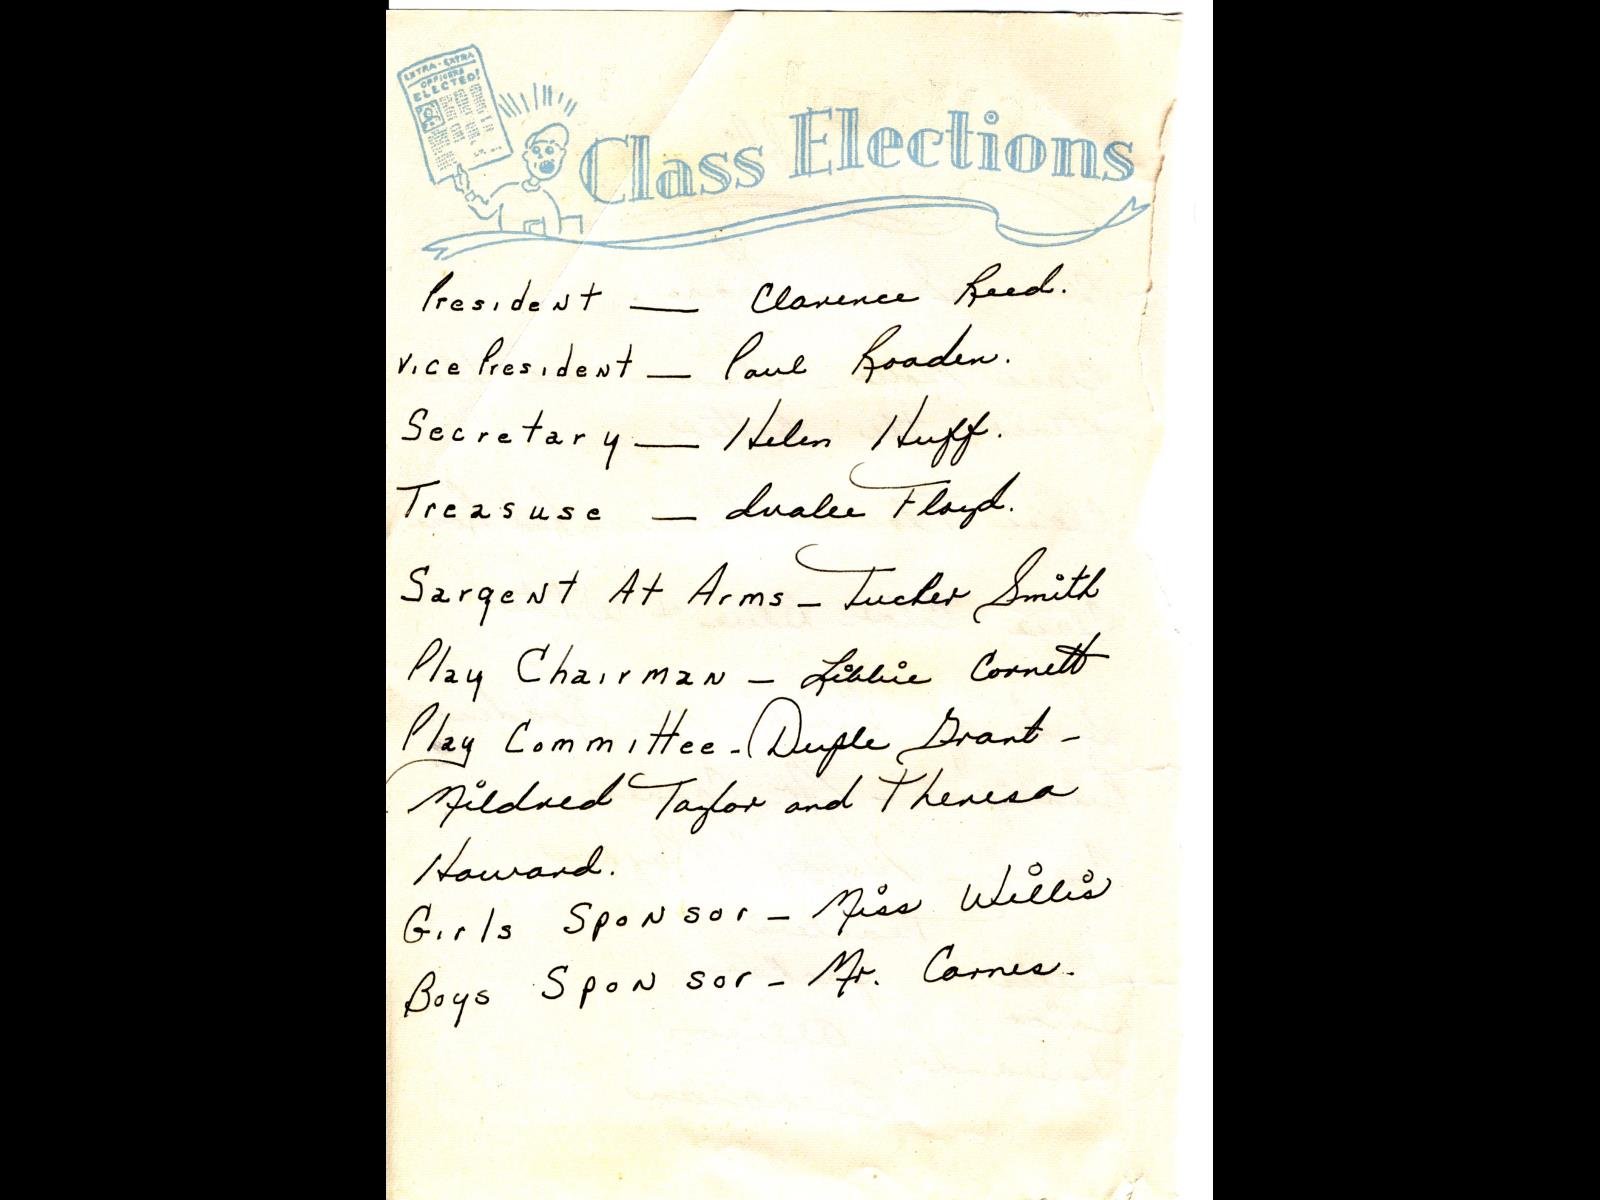 EXTRA - EXTRA
OFFICERS
ELECTED!
Class Elections
President — Clarence Reed.
Vice President — Paul Roaden.
Secretary — Helen Huff.
Treasuse — Ivalee Floyd.
Sargent At Arms - Tucker Smith
Play Chairman - Libbie Cornett
Play Committee - Duple Grant -
Mildred Taylor and Theresa
Howard.
Girls Sponsor - Miss Willis
Boys Sponsor - Mr. Carnes.